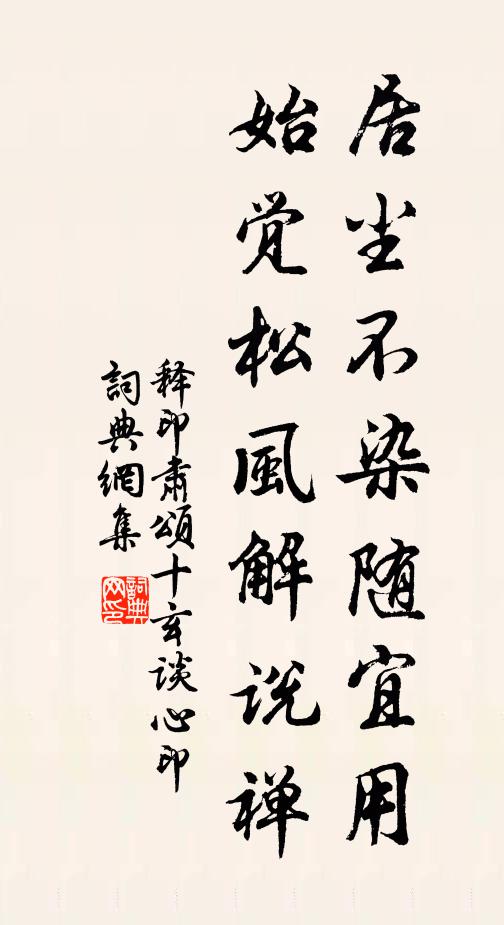 居尘不染随宜用
始觉松風解说禅
释印肃頌十玄谈心印
詞典網集
詞典網印